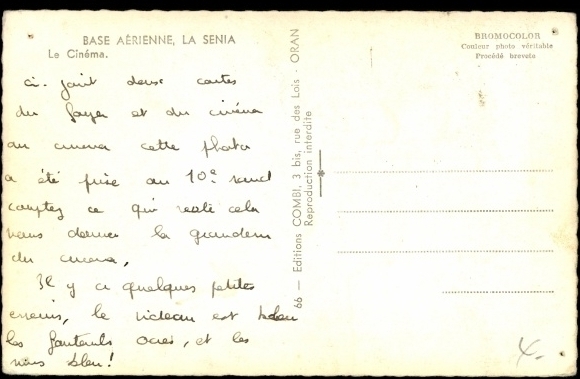 BASE AÉRIENNE, LA SENIA
Le Cinéma.
ci-joint deux cartes
du foyer et du cinéma
au cinéma cette photo
a été prise au 10e rand
comptez ce qui reste cela
vous donne la grandeur
du cinéma,
Il y a quelques petites
erreurs, le rideau est bleu
les fauteuils ocres, et les
murs bleu!
66 — Editions COMBI, 3 bis, rue des Lois - ORAN
Reproduction interdite
BROMOCOLOR
Couleur photo véritable
Procédé breveté
4.